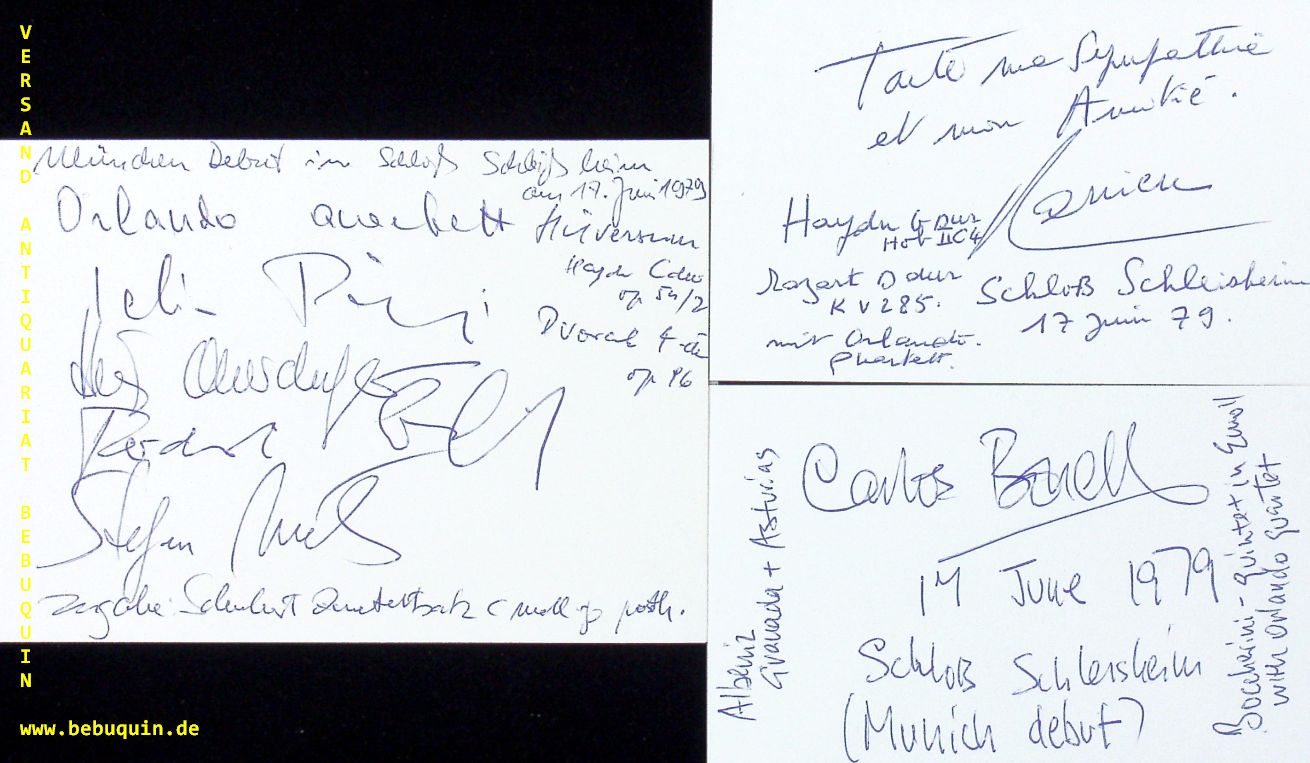 VERSAND ANTIQUARIAT BEBUQUIN
www.bebuquin.de
München Debut im Schloß Schleißheim
am 17. Juni 1979
Orlando Quartett
Hilversum
Haydn C dur
op 54/2
Dvorak F-du
op 96
Stefan Metz
Zugabe: Schubert Quartettsatz c moll op posth.
Toute ma Sympathie
et mon Amitié.
Haydn G Dur
Hob II C4
Mozart D dur
KV 285.
mit Orlando.
Quartett.
Schloß Schleisheim
17 Juin 79.
Carlos Bonell
17 June 1979
Schloß Schleisheim
(Munich debut)
Albeniz
Granada + Asturias
Boccherini - Quintet in Emoll
with Orlando Quartet